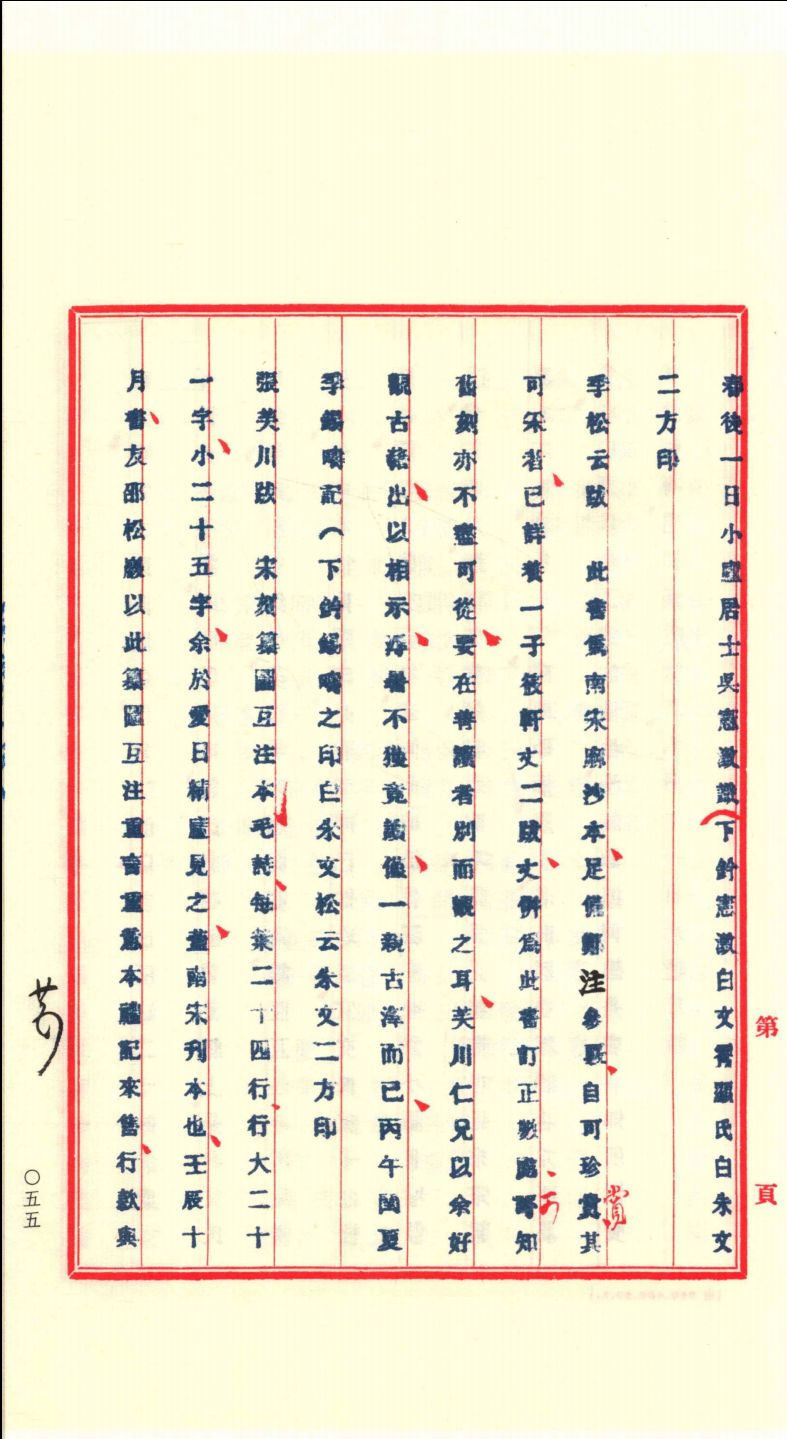 春後一日小廬居士吳憲澂識（下鈐憲澂白文霄顯氏白朱文
二方印
季松云跋　此書舊南宋廖抄本足俻鄭注參覈自可珍賞其
可宋者已詳養一子筱軒丈二跋丈併為此書訂正數處可知
舊刻亦不盡可從要在善讀者別而擴之耳芙川仁兄以余好
觀古籍出以相示溽暑不獲竟讀僅一親古澤而已丙午閏夏
季錫疇記（下鈐錫疇之印白朱文松云朱文二方印
張芙川跋　宋刻纂圖互注本毛詩每葉二十四行行大二十
一字小二十五字余於愛日精廬見之蓋南宋刊本也壬辰十
月書友邵松巖以此纂圖互注重言重意本禮記來售行款與
第　頁
〇五五